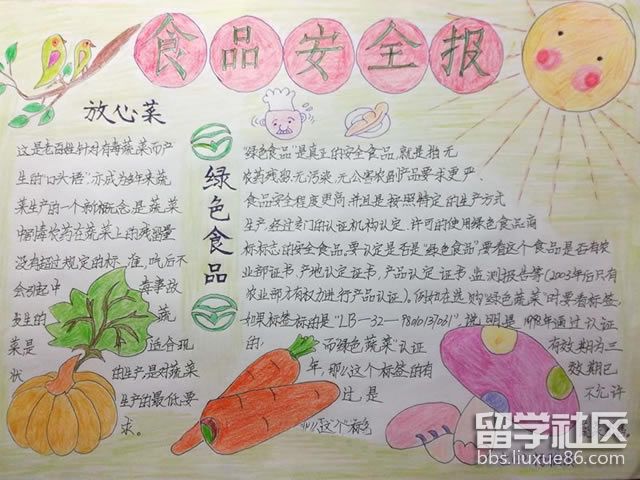 食品安全报
放心菜
这是老百姓针对有毒蔬菜而产
生的“口头语”亦成为多年来蔬
菜生产的一个新概念是蔬菜
中的农药在蔬菜上的残留量
没有超过规定的标准,吃后不
会引起中毒事故
发生的蔬
菜是适合现
状的生产是对蔬菜
生产的最低要
求。
绿色食品
“绿色食品”是真正的安全食品,就是指无
农药残留,无污染,无公害农副产品要求更严.
食品安全程度更高,并且是按照特定的生产方式
生产,经过专门的认证机构认定,许可的使用绿色食品商
标标志的安全食品。要认定是否是“绿色食品”,要看这个食品是否有农
业部证书,产地认定证书,产品认定证书,监测报告等(2003年后只有
农业部才有权力进行产品认证)。例如在选购绿色蔬菜时要看标签,
如果标签标的是 说明是1998年通过认证
的,而绿色蔬菜”认证有效期为三
年,那么这个标签的有效期已
过,是不允许
留学社区
bbs.liuxue86.com